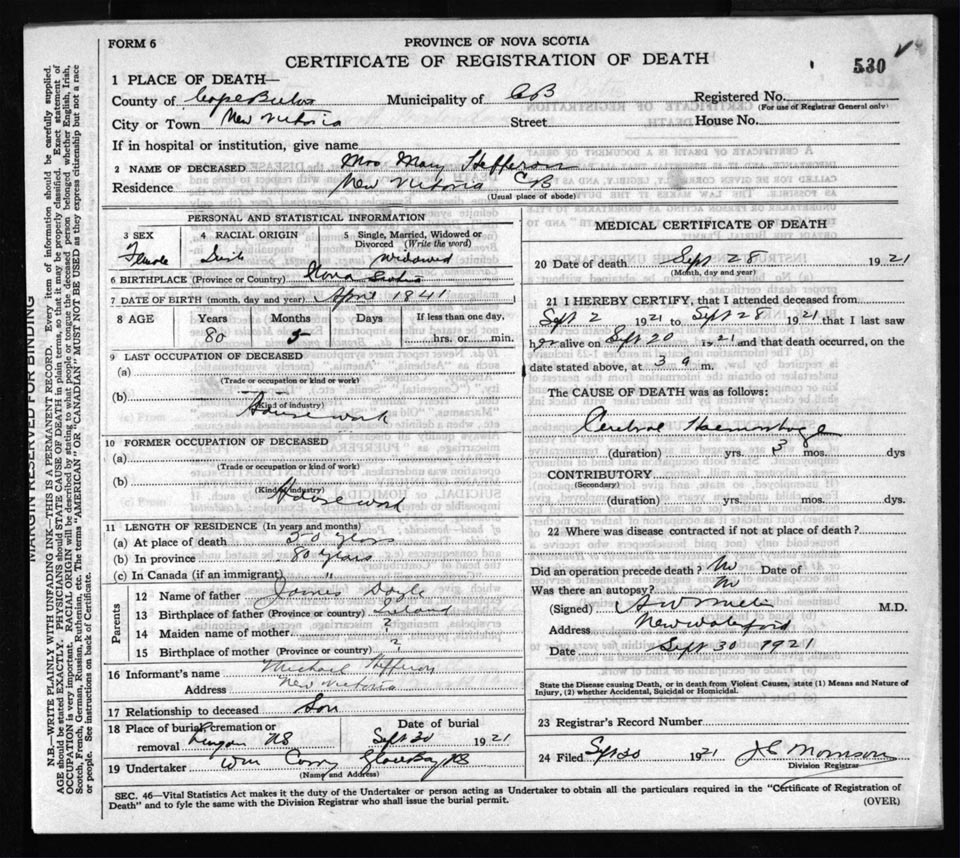 FORM 6
PROVINCE OF NOVA SCOTIA
CERTIFICATE OF REGISTRATION OF DEATH
530
1 PLACE OF DEATH—
County of Cape Breton Municipality of CB Registered No.
(For use of Registrar General only)
City or Town New Victoria Street House No.
If in hospital or institution, give name
2 NAME OF DECEASED Mrs Mary Hefferon
Residence New Victoria CB
(Usual place of abode)
PERSONAL AND STATISTICAL INFORMATION
3 SEX Female
4 RACIAL ORIGIN Irish
5 Single, Married, Widowed or Divorced (Write the word) Widowed
6 BIRTHPLACE (Province or Country) Nova Scotia
7 DATE OF BIRTH (month, day and year) April 1841
8 AGE Years 80 Months 5 Days If less than one day, hrs. or min.
9 LAST OCCUPATION OF DECEASED
(a)
(Trade or occupation or kind or work)
(b) House work
(Kind of industry)
10 FORMER OCCUPATION OF DECEASED
(a)
(Trade or occupation or kind or work)
(b) House work
(Kind of industry)
11 LENGTH OF RESIDENCE (In years and months)
(a) At place of death 50 years
(b) In province 80 years
(c) In Canada (if an immigrant) "
Parents
12 Name of father James Doyle
13 Birthplace of father (Province or country) Ireland
14 Maiden name of mother ?
15 Birthplace of mother (Province or country) ?
16 Informant's name Michael Hefferon
Address New Victoria
17 Relationship to deceased Son
18 Place of burial, cremation or removal Lingan NS
Date of burial Sept 30 1921
19 Undertaker Wm Curry Glace Bay NS
(Name and Address)
MEDICAL CERTIFICATE OF DEATH
20 Date of death Sept 28 1921
(Month, day and year)
21 I HEREBY CERTIFY, that I attended deceased from
Sept 2 1921 to Sept 28 1921 that I last saw
her alive on Sept 20 1921 and that death occurred, on the
date stated above, at 3 a m.
The CAUSE OF DEATH was as follows:
Cerebral Haemorrhage
(duration) yrs. 3 mos. dys
CONTRIBUTORY
(Secondary)
(duration) yrs. mos. dys.
22 Where was disease contracted if not at place of death?
Did an operation precede death? No Date of
Was there an autopsy? No
(Signed) M.D.
Address New Waterford
Date Sept 30 1921
State the Disease causing Death, or in death from Violent Causes, state (1) Means and Nature of
Injury, (2) whether Accidental, Suicidal or Homicidal.
23 Registrar's Record Number
24 Filed Sept 30 1921 J E Morrison
Division Registrar
SEC. 46—Vital Statistics Act makes it the duty of the Undertaker or person acting as Undertaker to obtain all the particulars required in the "Certificate of Registration of
Death" and to fyle the same with the Division Registrar who shall issue the burial permit.
(OVER)
MARGIN RESERVED FOR BINDING
N.B.—WRITE PLAINLY WITH UNFADING INK—THIS IS A PERMANENT RECORD. Every item of information should be carefully supplied.
AGE should be stated EXACTLY. PHYSICIANS should STATE CAUSE OF DEATH in plain terms, so that it may be properly classified. Exact statement of
OCCUPATION is very important. RACIAL ORIGIN will be described by stating to what people or tongue the deceased person belonged whether English, Irish,
Scotch, French, German, Russian, Ruthenian, etc. The terms "AMERICAN" OR "CANADIAN" MUST NOT BE USED as they express citizenship but not a race
or people. See instructions on back of Certificate.